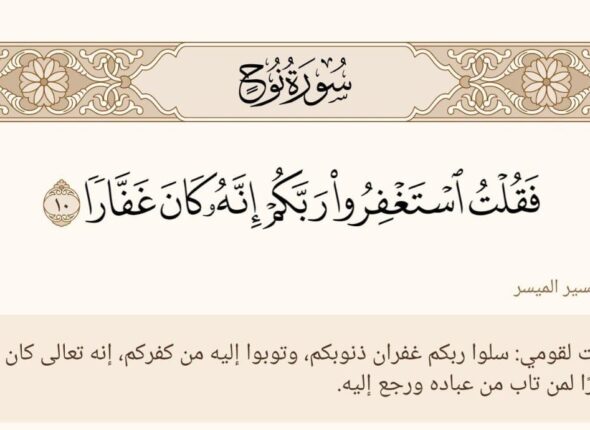 سُورَةُ نُوحٍ
فَقُلْتُ ٱسْتَغْفِرُوا۟ رَبَّكُمْ إِنَّهُۥ كَانَ غَفَّارًا ١٠
الميسر
لقومي: سلوا ربكم غفران ذنوبكم، وتوبوا إليه من كفركم، إنه تعالى كان
لمن تاب من عباده ورجع إليه.